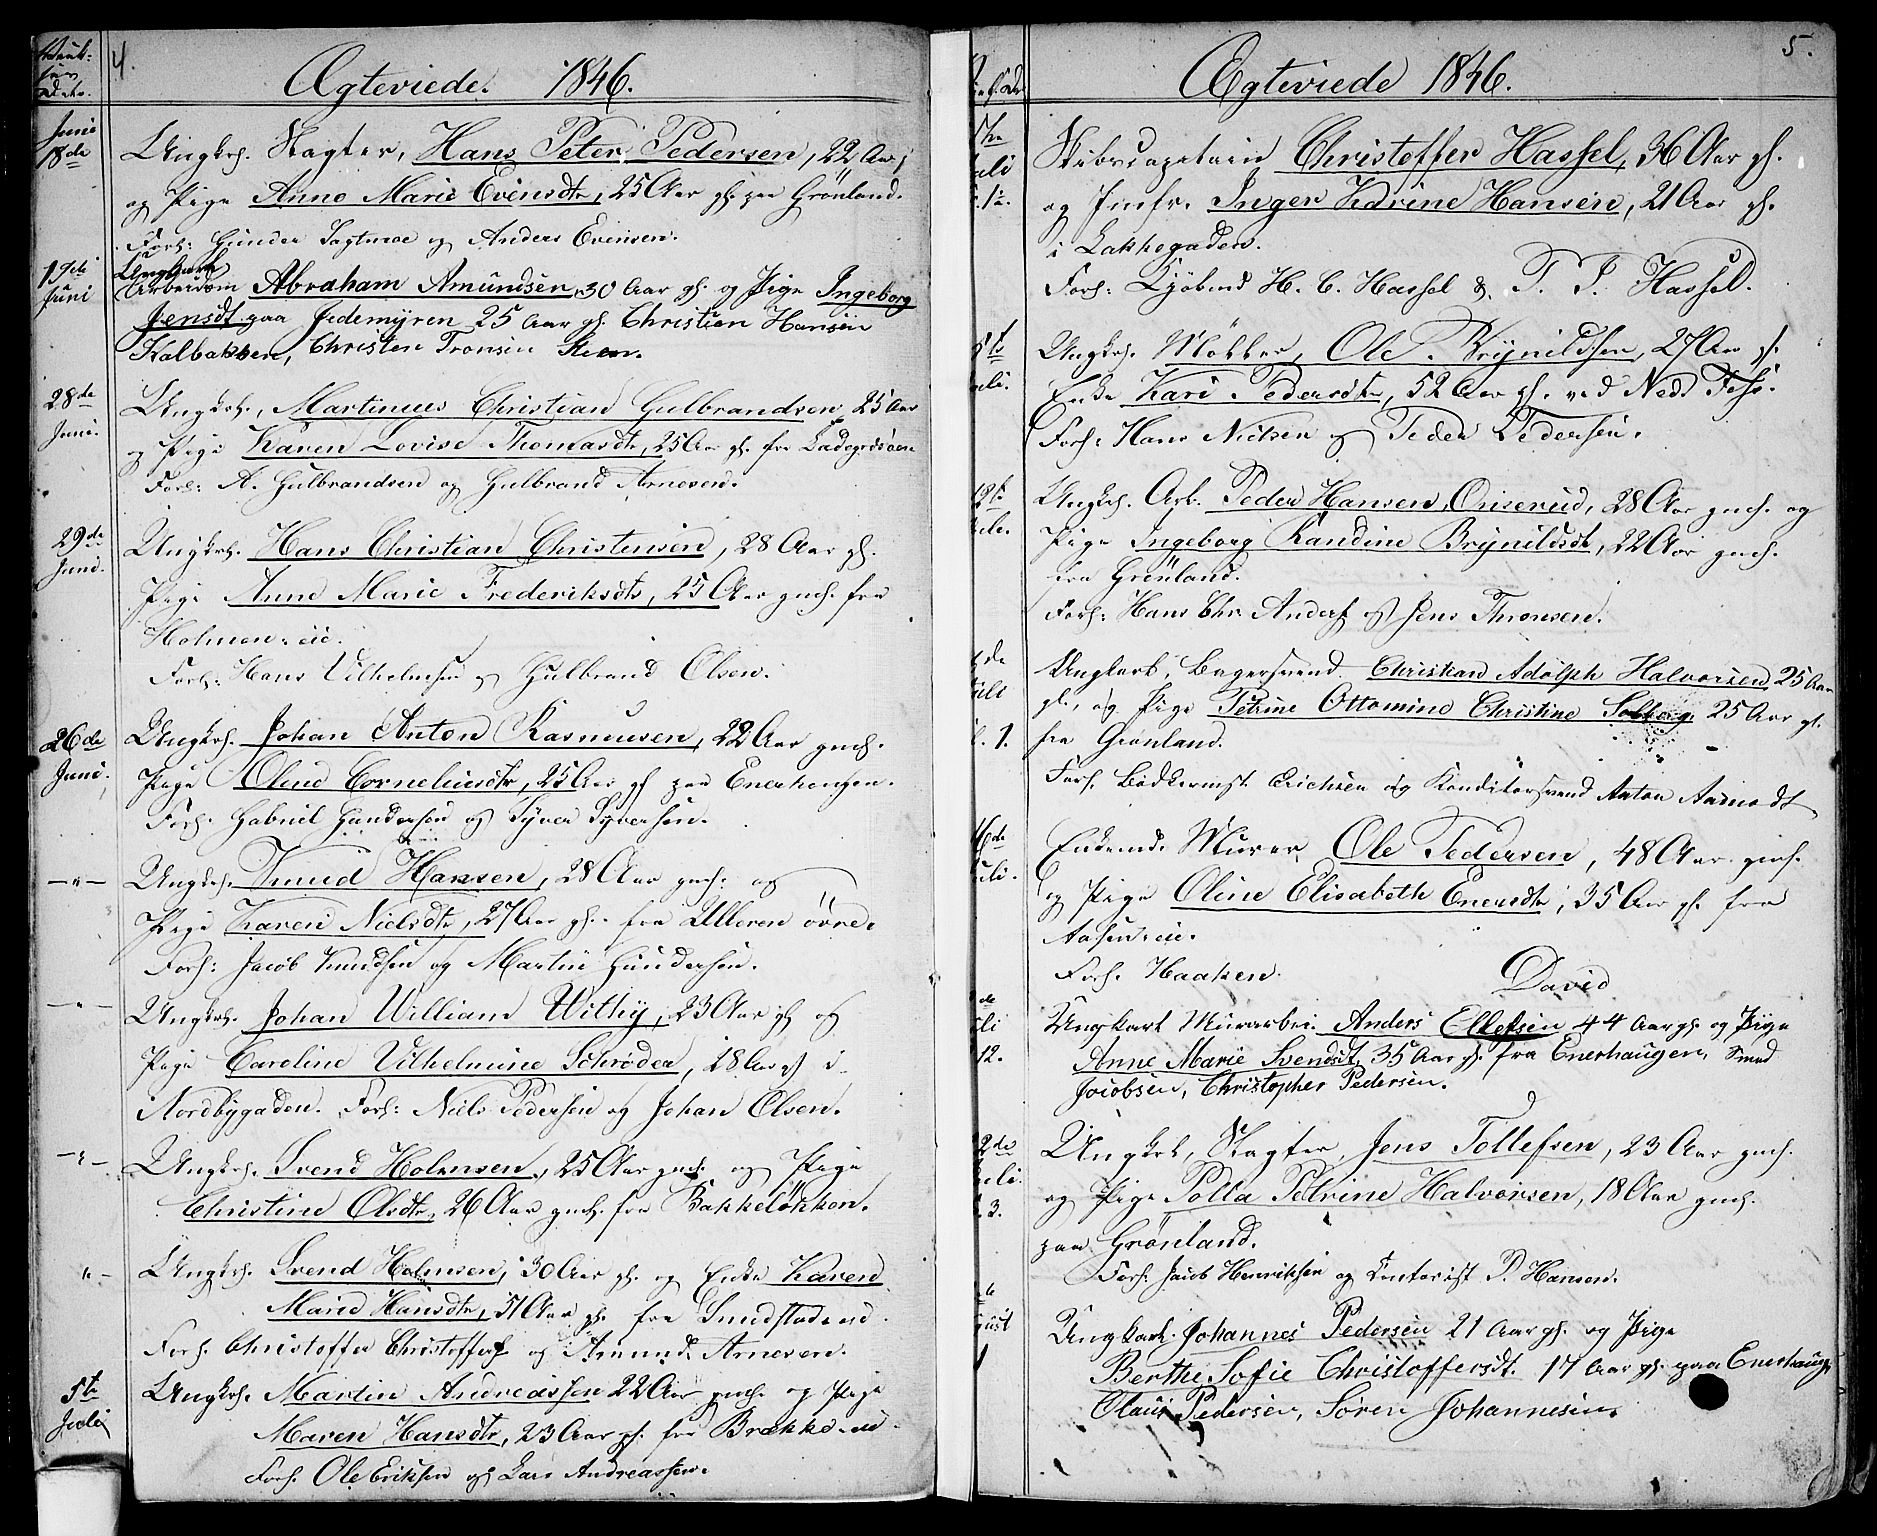 4.
Ægteviede. 1846.
Juni
18de
Ungkrl. Slagter, Hans Peter Pedersen, 22 Aar
og Pige Anne Marie Evensdtr, 25 Aar gl. paa Grönland.
Forl: Gunder Sagtmoe og Anders Evensen.
19de
Juni
Ungkarl
Arbeidsm Abraham Amundsen, 30 Aar gl. og Pige Ingeborg
Jensdt. paa Jedemyren 25 Aar gl. Christian Hansen
Kalbakken, Christen Tronsen
28de
Juni.
Ungkrl. Martinus Christian Gulbrandsen 25 Aar
og Pige Karen Lovise Thomasdtr, 25 Aar gl. fra Ladegrdsöen
Forl: A. Gulbrandsen og Gulbrand Arnesen.
29de
Juni.
Ungkrl. Hans Christian Christensen, 28 Aar gl.
Pige Anne Marie Frederiksdtr, 25 Aar gml. fra
Holmen-eie.
Forl: Hans Vilhelmsen og Gulbrand Olsen.
26de
Juni,
Ungkrl. Johan Anton Rasmusen, 22 Aar gml.
Pige Oline Corneliusdtr, 25 Aar gl paa Enerhougen.
Forl. Gabriel Gundersen og Syver Syversen.
—"—
Ungkrl. Knud Hansen, 28 Aar gml. og
Pige Karen Nielsdtr, 27 Aar gl. fra Ulleren övre.
Forl: Jacob Knudsen og Martin Gundersen.
—"—
Ungkrl. Johan William Withy, 23 Aar gl og
Pige Caroline Vilhelmine Schrøder, 18 Aar gl i
Nordbygaden. Forl: Niels Pedersen og Johan Olsen.
—"—
Ungkrl. Svend Holmsen, 25 Aar gml. og Pige
Christine Olsdtr, 26 Aar gml. fra Bakkelökken.
"—
Ungkrl. Svend Holmsen, 30 Aar gl. og Enke Karen
Marie Hansdtr, 51 Aar gl. fra
Forl. Christoffer Christoffers og Amund Arnesen.
5te
Juli
Ungkrl. Martin Andreassen 22 Aar gml. og Pige
Maren Hansdtr, 23 Aar gl. fra Brække-eie
Forl. Ole Eriksen og Lars Andreassen.
5.
Ægteviede 1846.
Skibscapitain Christoffer Hassel, 36 Aar gl.
og Jmfr. Inger Kdrine Hansen, 21 Aar gl.
i Lakkegaden.
Forl: Kjöbmd H. C. Hassel &. T. J. Hassel.
Ungkrl. Møller, Ole Brynildsen, 27 Aar gl.
Enke Kari Pedersdtr, 52 Aar gl. ved Nedr Foss.
Forl: Hans Nielsen og Peder Pedersen.
Ungkrl. Arb. Peder Hansen, Oriserud, 28 Aar gml. og
Pige Ingeborg Randine Brynildsdtr, 22 Aar gml.
fra Grönland.
Forl: Hans Chr. Anders og Jens Thronsen.
Ungkarl, Bagersvend Christian Adolph Halvorsen, 25 Aar
gl., og Pige Petrine Ottomine Christine Solberg 25 Aar gl.
fra Grønland.
Forl. Bødkermst Erichsen og Konditorsvend Anton Aamodt
Enkemd. Murer, Ole Pedersen, 48 Aar gml.
og Pige Oline Elisabeth Enersdtr, 35 Aar gl. fra
Aasen-eie.
Forl. Haaken. David
12.
Ungkarl Murarbei. Anders Ellefsen 44 Aar gl. og Pige
Anne Marie Svendsdt. 35 Aar gl. fra Enerhaugen, Knud
Jacobsen, Christopher Pedersen.
Ungkrl, Slagter, Jens Tollefsen, 23 Aar gml.
og Pige Polla Petrine Halvorsen, 18 Aar gml.
paa Grönland.
Forl. Jacob Henriksen og Contorist P. Hansen.
Ungkarl Johannes Pedersen 21 Aar gl. og Pige
Berthe Sofie Christoffersdt. 17 Aar gl. paa Enerhaug
Olaus Pedersen, Søren Johannesen.